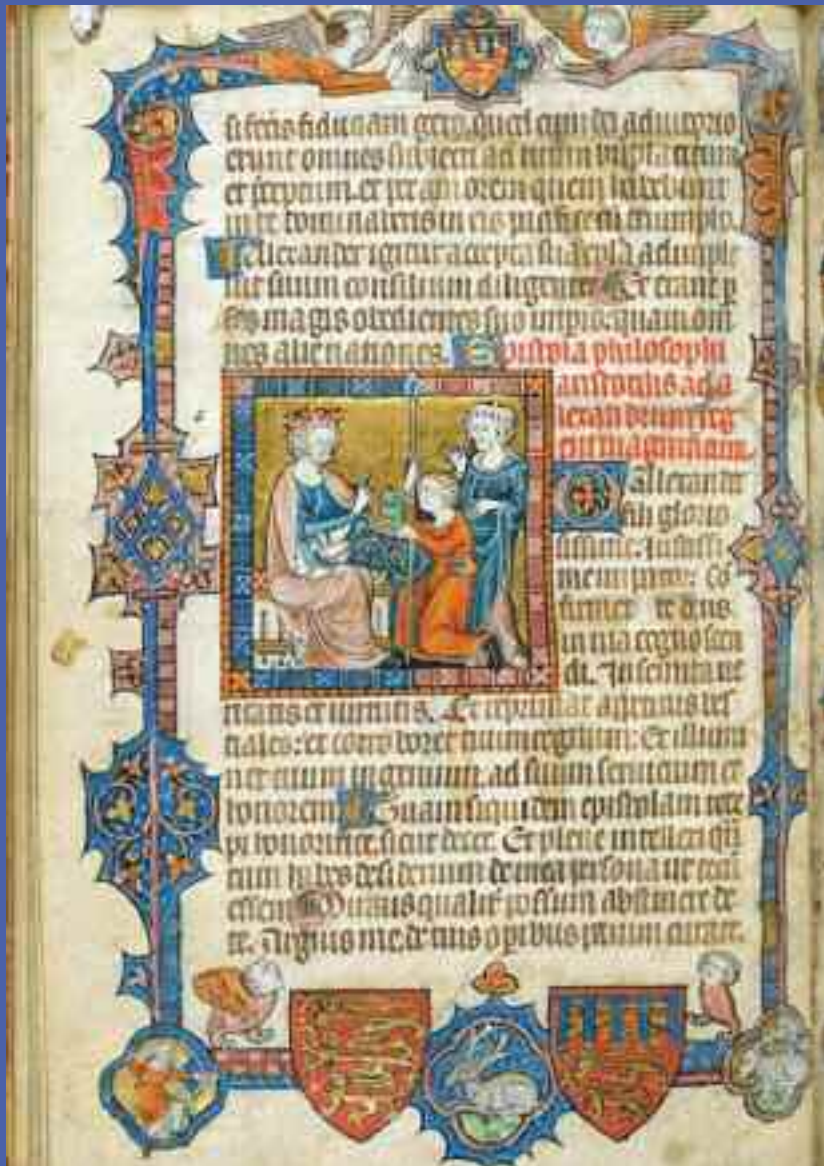 fiduciam gero quod cum dei adiutorio
erunt omnes subiecti ad tuum
et preceptum. et per amorem quem habebunt
in te dominaberis in eis pacifice cum triumpho
Alexander igitur accepta adimple
uit suum consilium diligenter. Et erant p
se magis obedientes suo imperio. quam om
nes alie nationes. Epistola philosophi
aristotilis ad a
lexandrum reg
em magnum
Alexander
fili glorio
sissime. iustissi
me co
firmet te deus
in uia cognoscen
di. In semita ue
ritatis et uirtutis. Et reprimat appetitus bes
tiales: et corroboret tuum regnum: Et illumi
net tuum ingenium. ad suum seruicium et
honorem Tuam siquidem epistolam rece
pi honorifice. sicut decet. Et plene intellexi
tum habes desiderium de mea persona ut tecum
essem Miraris qualiter possum abstinere de
te. Arguis me. de tuis operibus parum curare.